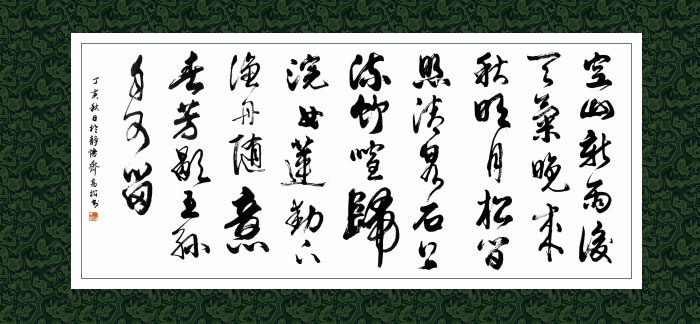 空山新雨後
天氣晚來
秋明月松間
照清泉石上
流竹喧歸
浣女蓮動下
漁舟随意
春芳歇王孫
自可留
丁亥秋日於靜悟齋高松书